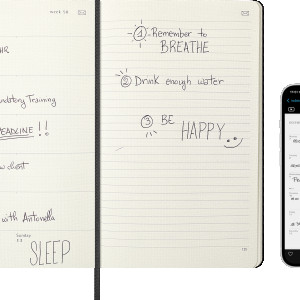 week 50
HR
ndatory Training
EADLINE !!
w client
with Antonella
Sunday
13
SLEEP
① Remember to
BREATHE
② Drink enough water
③ BE
HAPPY